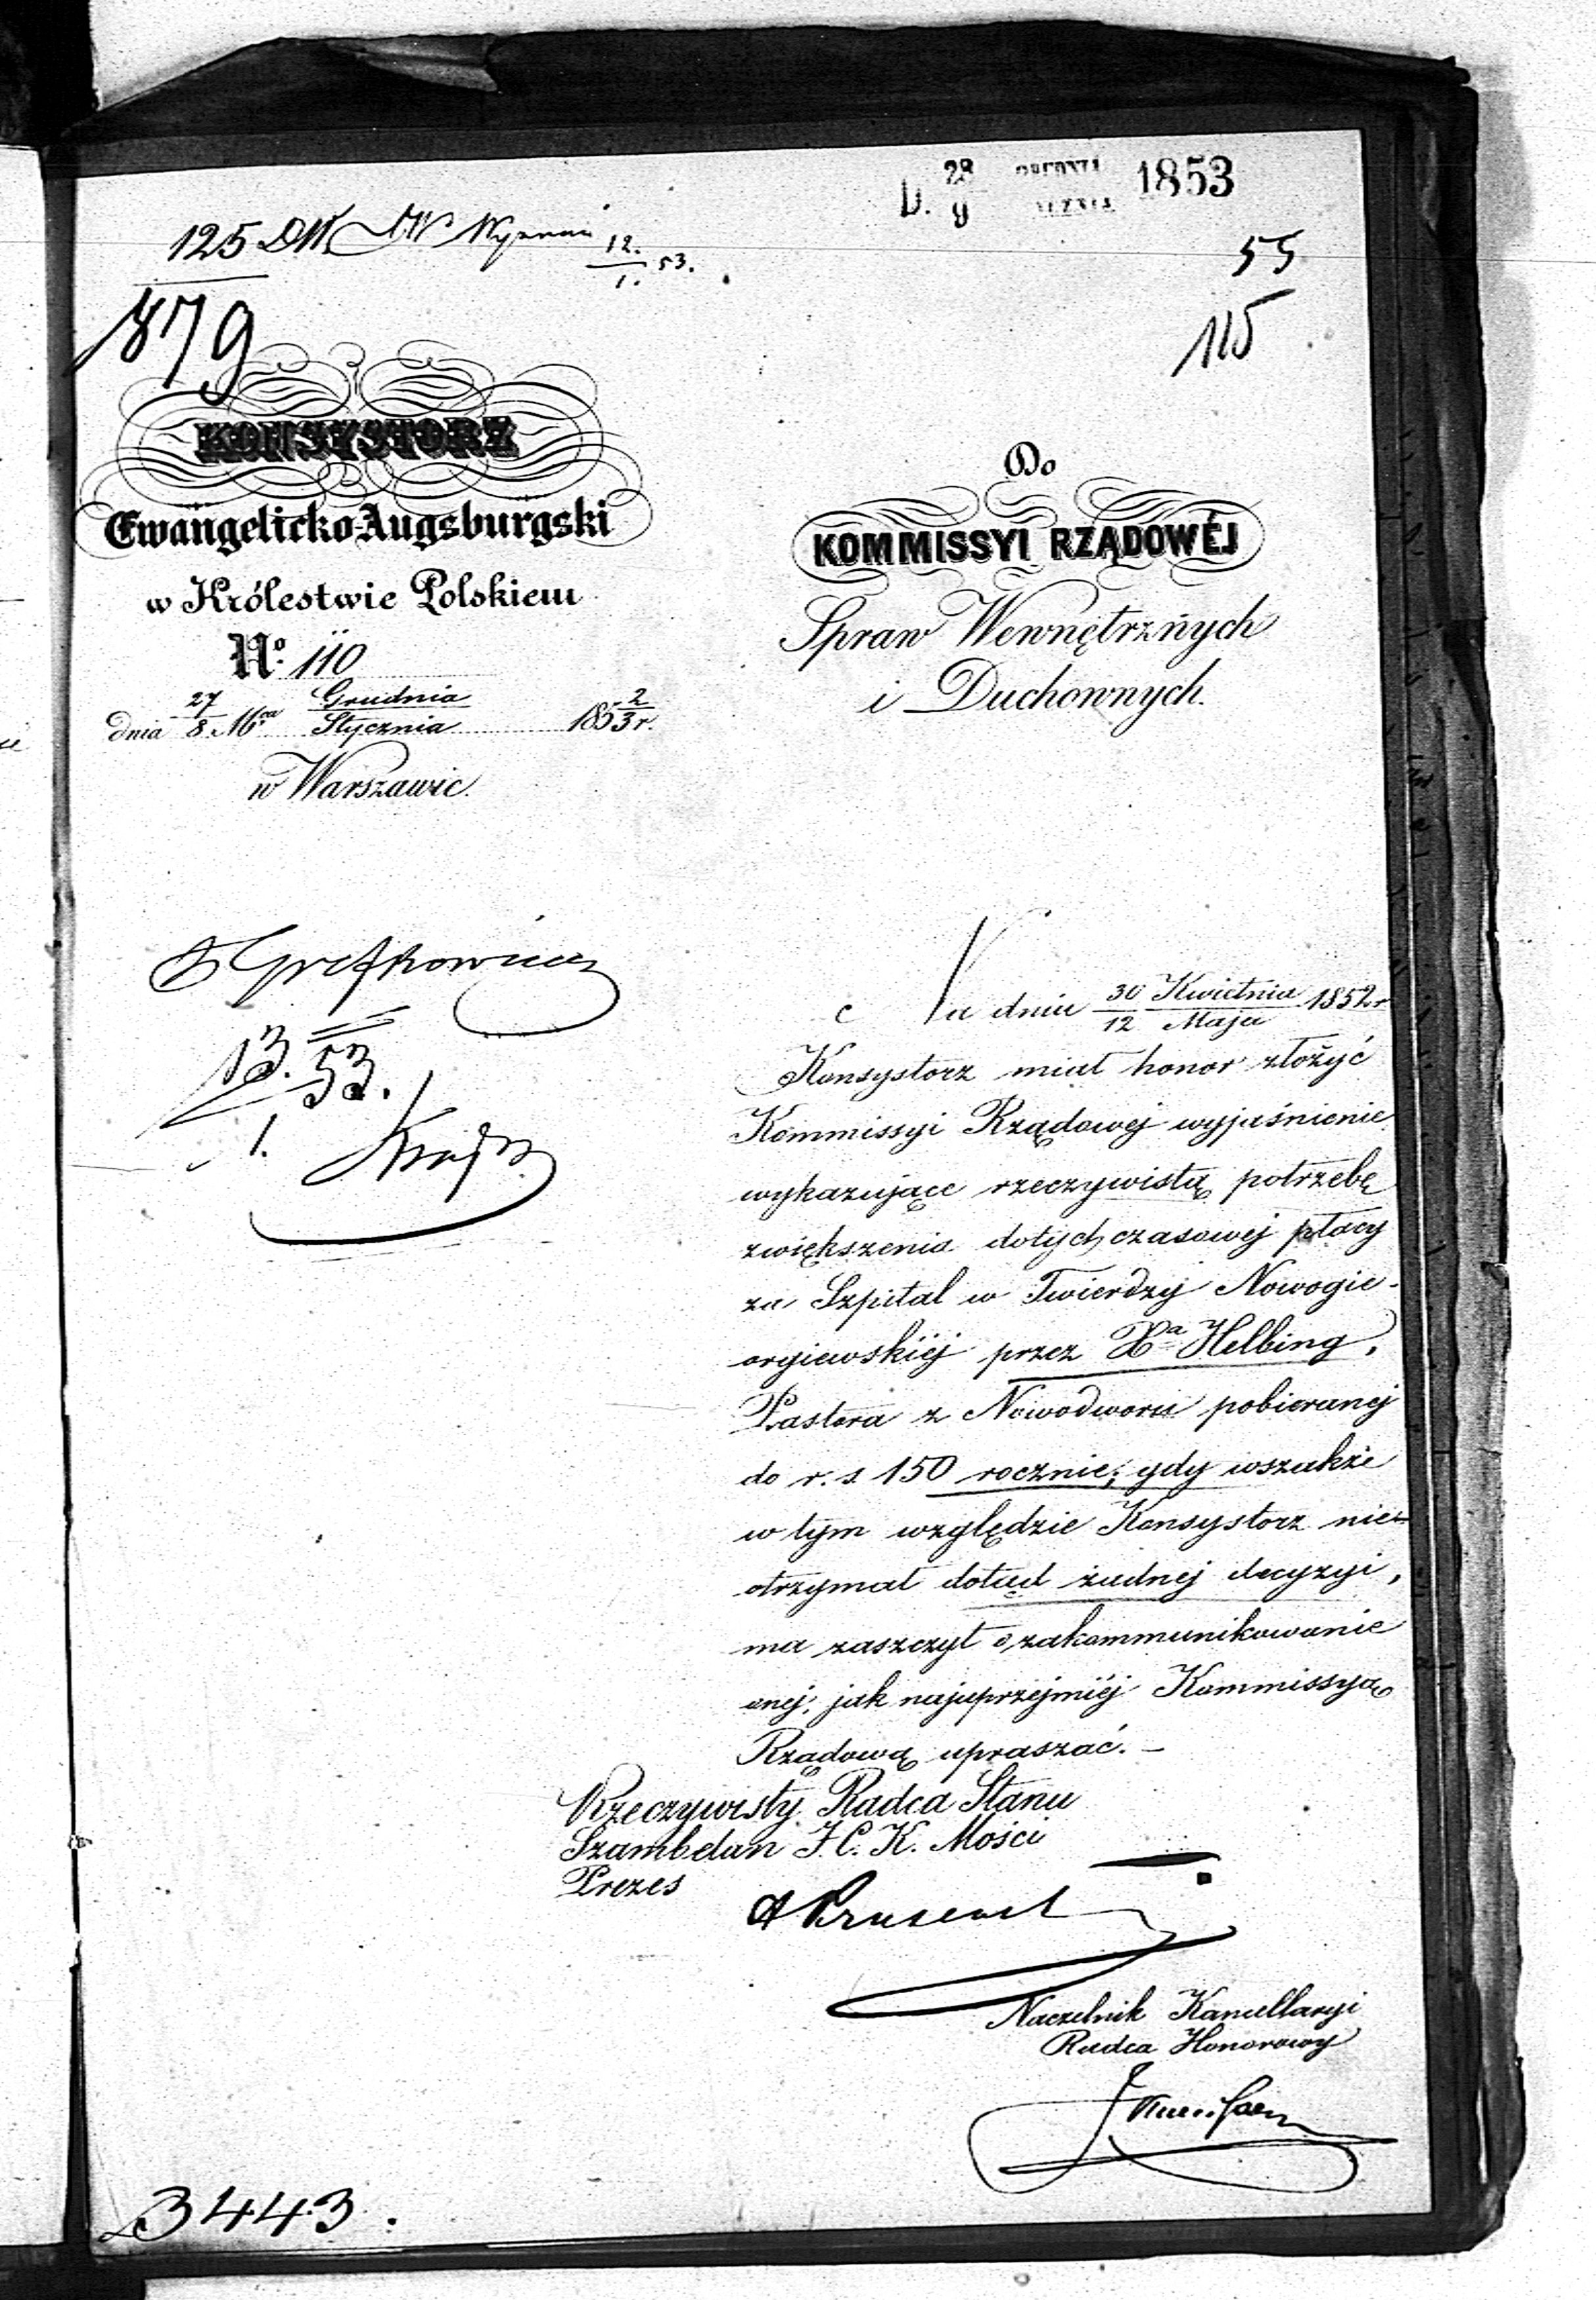 D. 28 GRUDNIA 1853
9
125 DW Wyznań 12. 53.
1.
55
879
115
KONSYSTORZ
Ewangelicko-Augsburgski
w Królestwie Polskiem
No. 110
dnia 27 Grudnia 1852
8 Mca Stycznia 3 r.
w Warszawie.
Do
KOMMISSYI RZĄDOWÉJ
Spraw Wewnętrznych
i Duchownych.
13. 53.
1.
Na dniu 30 Kwietnia 1852 r
12 Maja
Konsystorz miał honor złożyć
Kommissyi Rządowej wyjaśnienie
wykazujące rzeczywistą potrzebę
zwiększenia dotychczasowej płacy
za Szpital w Twierdzy Nowogie-
orgiewskiéj przez Xa Helbing,
Pastora z Nowodworu pobieranej
do r. s. 150 rocznie; gdy wszakże
w tym względzie Konsystorz nie-
otrzymał dotąd żadnej decyzyi,
ma zaszczyt o zakommunikowanie
onej, jak najuprzejmiéj Kommissyą
Rządową upraszać. –
Rzeczywisty Radca Stanu
Szambelan J. C. K. Mości
Prezes
Naczelnik Kancellaryi
Radca Honorowy
3443.